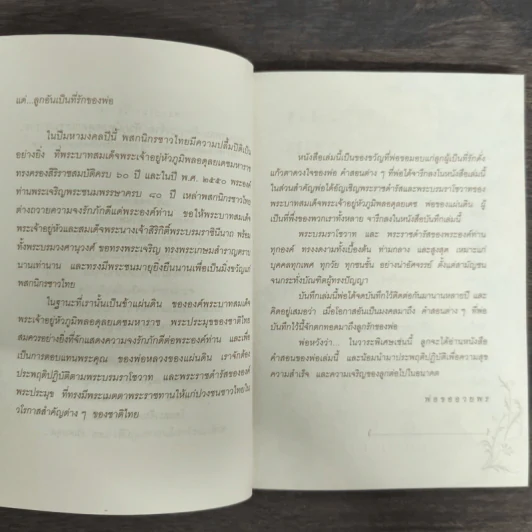 แด่...ลูกอันเป็นที่รักของพ่อ
ในปีมหามงคลปีนี้ พสกนิกรชาวไทยมีความปลื้มปีติเป็น
อย่างยิ่ง ที่พระบาทสมเด็จพระเจ้าอยู่หัวภูมิพลอดุลยเดชมหาราช
ทรงครองสิริราชสมบัติครบ ๖๐ ปี และในปี พ.ศ. ๒๕๕๐ พระองค์
ท่านพระเจริญพระชนมพรรษาครบ ๘๐ ปี เหล่าพสกนิกรชาวไทย
ต่างถวายความจงรักภักดีแด่พระองค์ท่าน ขอให้พระบาทสมเด็จ
พระเจ้าอยู่หัวและสมเด็จพระนางเจ้าสิริกิติ์พระบรมราชินีนาถ พร้อม
ทั้งพระบรมวงศานุวงศ์ ขอทรงพระเจริญ ทรงพระเกษมสำราญตราบ
นานเท่านาน และทรงมีพระชนมายุยิ่งยืนนานเพื่อเป็นมิ่งขวัญแก่
พสกนิกรชาวไทย
ในฐานะที่เรานั้นเป็นข้าแผ่นดิน ขององค์พระบาทสมเด็จ
พระเจ้าอยู่หัวภูมิพลอดุลยเดชมหาราช พระประมุขของชาติไทย
สมควรอย่างยิ่งที่จักแสดงความจงรักภักดีต่อพระองค์ท่าน และเพื่อ
เป็นการตอบแทนพระคุณ ของพ่อหลวงของแผ่นดิน เราจักต้อง
ประพฤติปฏิบัติตามพระบรมราโชวาท และพระราชดำรัสขององค์
พระประมุข ที่ทรงมีพระเมตตาพระราชทานให้แก่ปวงชนชาวไทยใน
วโรกาสสำคัญต่าง ๆ ของชาติไทย
หนังสือเล่มนี้เป็นของขวัญที่พ่อขอมอบแก่ลูกผู้เป็นที่รักดั่ง
แก้วตาดวงใจของพ่อ คำสอนต่าง ๆ ที่พ่อได้จารึกลงในหนังสือเล่มนี้
ในส่วนสำคัญพ่อได้อัญเชิญพระราชดำรัสและพระบรมราโชวาทของ
พระบาทสมเด็จพระเจ้าอยู่หัวภูมิพลอดุลยเดช พ่อของแผ่นดิน ผู้
เป็นที่พึ่งของพวกเราทั้งหลาย จารึกลงในหนังสือบันทึกเล่มนี้
พระบรมราโชวาท และ พระราชดำรัสของพระองค์ท่าน
ทุกองค์ ทรงงดงามทั้งเบื้องต้น ท่ามกลาง และสูงสุด เหมาะแก่
บุคคลทุกเพศ ทุกวัย ทุกชนชั้น อย่างน่าอัศจรรย์ ตั้งแต่สามัญชน
จนกระทั่งบัณฑิตผู้ทรงปัญญา
บันทึกเล่มนี้พ่อได้จดบันทึกไว้ติดต่อกันมานานหลายปี และ
คิดอยู่เสมอว่า เมื่อโอกาสอันเป็นมงคลมาถึง คำสอนต่าง ๆ ที่พ่อ
บันทึกไว้นี้จักตกทอดมาถึงลูกรักของพ่อ
พ่อหวังว่า... ในวาระพิเศษเช่นนี้ ลูกจะได้อ่านหนังสือ
คำสอนของพ่อเล่มนี้ และน้อมนำมาประพฤติปฏิบัติเพื่อความสุข
ความสำเร็จ และความเจริญของลูกต่อไปในอนาคต
พ่อขออวยพร